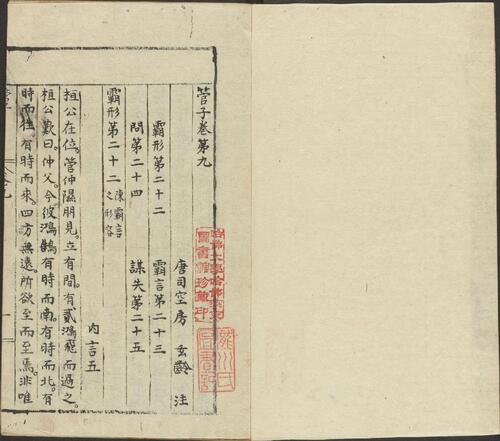 管子卷第九
唐司空房 玄齡 注
霸形第二十二 霸言第二十三
問第二十四 謀失第二十五
霸形第二十二 陳霸言之形容 內言五
桓公在位。管仲隰朋見。立有間。有貳鴻飛而過之。
桓公歎曰。仲父。今彼鴻鵠有時而南。有時而北。有
時而往。有時而來。四方無遠。所欲至而至焉。非唯
哈佛大學哈佛燕京圖書館珍藏印